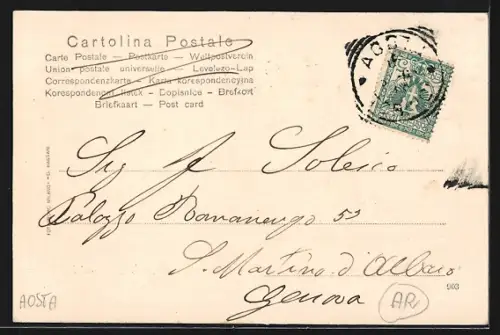 Cartolina Postale
Carte Postale — Postkarte — Weltpostverein
Union postale universelle — Levelezo-Lap
Correspondenzkarte - Karta korespondencyjna
Korespondenční lístek - Dopisnice - Brefkort
Briefkaart — Post card
Sig
Palazzo Romanengo 52
S. Martino d'Albaro
Genova
AOSTA
AR
903